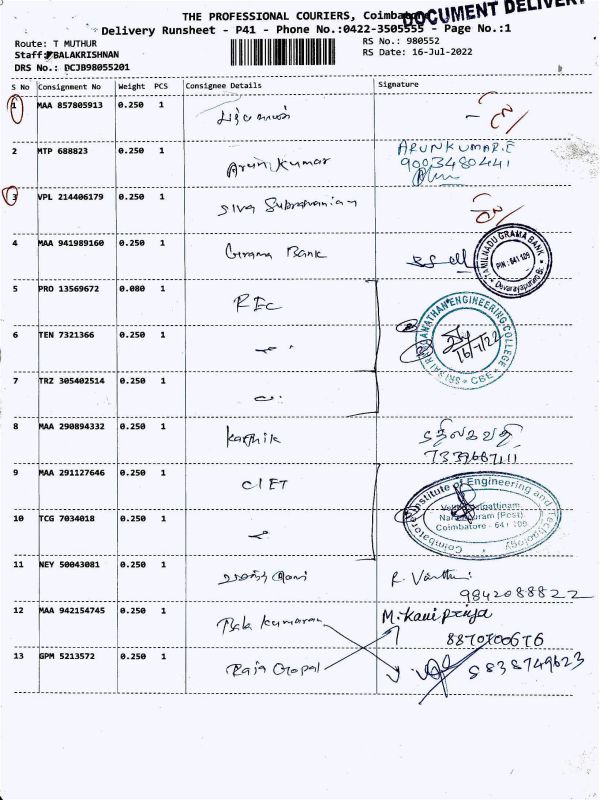 THE PROFESSIONAL COURIERS, Coimbatore
DOCUMENT DELIVERY
Delivery Runsheet - P41 - Phone No.:0422-3505555 - Page No.:1
Route: T MUTHUR
RS No.: 980552
Staff: BALAKRISHNAN
RS Date: 16-Jul-2022
DRS No.: DCJB98055201
S No Consignment No Weight PCS Consignee Details Signature
1 MAA 857805913 0.250 1
2 MTP 688823 0.250 1 Arun Kumar ARUNKUMAR.E
9003480441
3 VPL 214406179 0.250 1 Siva Subramanian
4 MAA 941989160 0.250 1 Grama Bank
TAMILNADU GRAMA BANK
PIN : 641 109
Devarayapuram Br.
5 PRO 13569672 0.080 1 REC
6 TEN 7321366 0.250 1
SRI SAI RANGANATHAN ENGINEERING COLLEGE
CBE
16/7/22
7 TRZ 305402514 0.250 1
8 MAA 290894332 0.250 1 Karthik
9 MAA 291127646 0.250 1 CIET
Coimbatore Institute of Engineering and Technology
Narasipuram (Post)
Coimbatore - 641 109
10 TCG 7034018 0.250 1
11 NEY 50043081 0.250 1 R. Vasthu
9842088822
12 MAA 942154745 0.250 1 Bala Kumaran M. Kavi priya
13 GPM 5213572 0.250 1 Raja Gopal